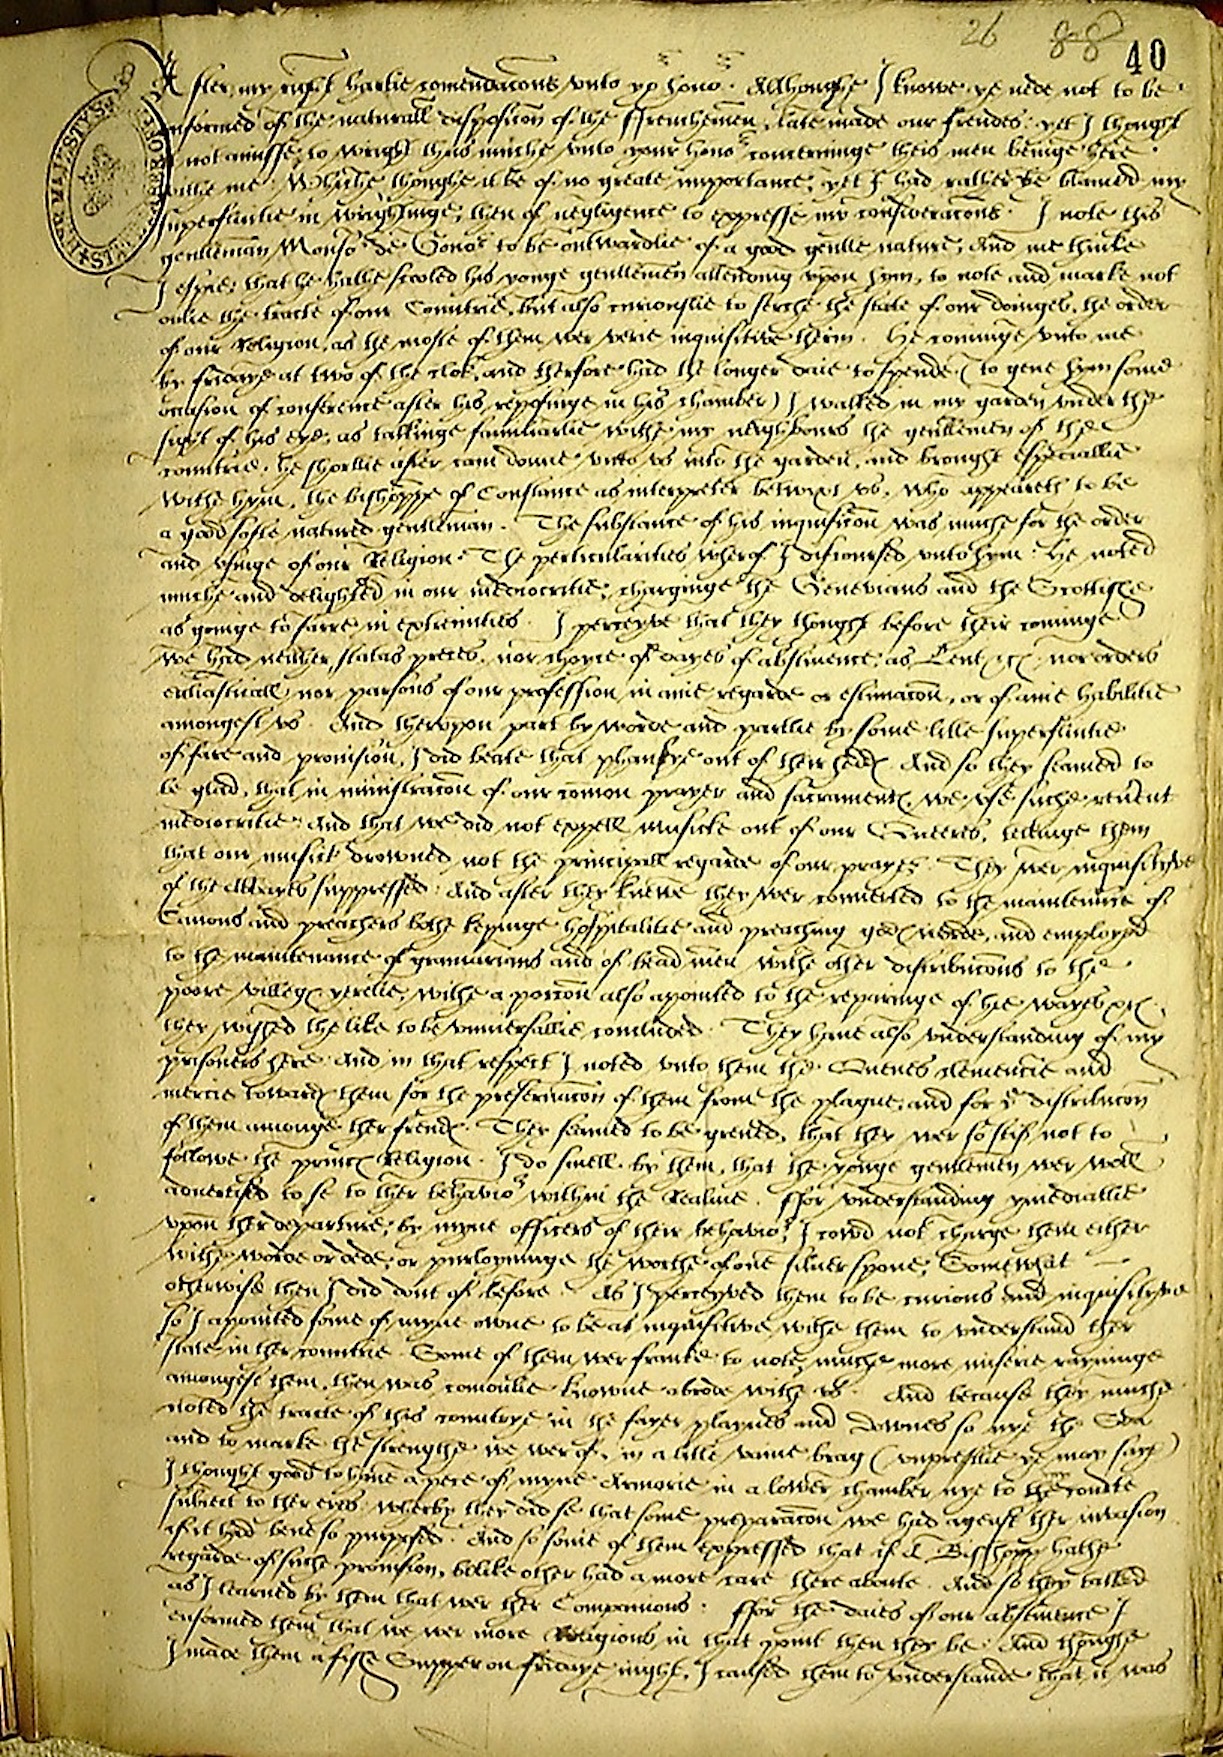 26 88 40
HER MAJESTY'S STATE PAPER OFFICE
After my right hartie comendacons unto yor honor. Althoughe I knowe ye nede not to be
enformed of the naturall disposicon of the ffrenchemen, late made our frendes: yet I thought
it not amisse, to wright thus muche unto your honor concerninge theis men beinge here
withe me. Whiche thoughe it be of no greate importance, yet I had rather be blamed my
superfluitie in wrightinge, then of negligence to expresse my consideracons. I note this
gentleman Monsor de Gonor to be outwardlie of a good gentle nature, And me thinke
I espie, that he hathe scooled his yonge gentlemen attending upon hym, to note and marke not
onlie the tracte of our Countrie, but also curiouslie to serche the state of our doinges, the order
of our Religion, as the moste of them wer verie inquisitive therin. He cominge unto me
by fridaye at two of the clok, and therfore had the longer daie to spende (to geve hym some
occasion of conference after his reposinge in his chamber) I walked in my garden under the
sight of his eye, as talkinge familiarlie withe my neighbours the gentlemen of the
countrie. He shortlie after cam downe unto us into the garden, and brought especiallie
withe hym, the bishoppe of Constance as interpreter betwixt us, who appeareth to be
a good softe natured gentleman. The substance of his inquisicon was muche for the order
and usinge of our Religion. The perticularities wherof I discoursed unto hym. He noted
muche and delighted in our mediocritie, charginge the Genevians and the Scottishe
as goinge to farre in extremities. I perceyve that they thought before their cominge
we had neither statas preces, nor choyce of dayes of abstinence, as Lent &c. nor orders
eccliasticall, nor parsons of our profession in anie regarde or estimacon, or of anie habilitie
amongest us. And therupon part by worde and partlie by some litle superfluitie
of fare and provision, I did beate that phansye out of their heds. And so they seamed to
be glad, that in ministracon of our comon prayer and sacraments we use suche reverent
mediocritie: And that we did not expell musicke out of our Queeres, tellinge them
that our musick drowned not the principall regarde of our prayer. They wer inquisityve
of the Abbayes suppressed: And after they knewe they wer converted to the maintenance of
Canons and preachers bothe kepinge hospitalitie and preaching gods worde, and employed
to the maintenance of gramarians and of bead men withe other distributions to the
poore villegs yerelie, withe a porcon also apointed to the repairinge of hie wayes &c.
they wished the like to be universallie concluded. They have also understanding of my
prisoners here. And in that respect I noted unto them the Quenes clemencie and
mercie towards them for the preservacon of them from the plague, and for ye distribucon
of them amonge ther frends. They seamed to be greved, that they wer so stif not to
followe the princs Religion. I do smell by them, that the yonge gentlemen wer well
advertised to se to ther behavior within the Realme. ffor understanding ymediatlie
upon ther departure, by myne officers of their behavior, I cowd not charge them either
withe worde or dede, or purloyninge the worthe of one silver spone, Somewhat
otherwise then I did dout of before. As I perceyved them to be curious and inquisityve
so I apointed some of myne owne to be as inquisitive withe them to understand ther
state in ther countrie. Some of them wer franke to note, muche more miserie rayninge
amongest them, then was comonlie knowne abrode withe us. And because they muche
noted the tracte of this countrye in the fayer playnes and downes so nye the Sea
and to marke the strengthe we wer of, in a litle vaine brag (unprestlie ye may say)
I thought good to have a pece of myne Armorie in a lower chamber nye to the courte
subject to ther eyes, wherby they did se that some preparacon we had agenst ther invasion
if it had bene so purposed. And so some of them expressed that if a Bisshopp hathe
regarde of suche provision, belike other had a more care there aboute. And so they talked
as I learned by them that wer ther Companions. ffor the daies of our abstinence I
enformed them that we wer more Religious in that point then they be. And thoughe
I made them a fishe Supper on fridaye night, I caused them to understande that it was